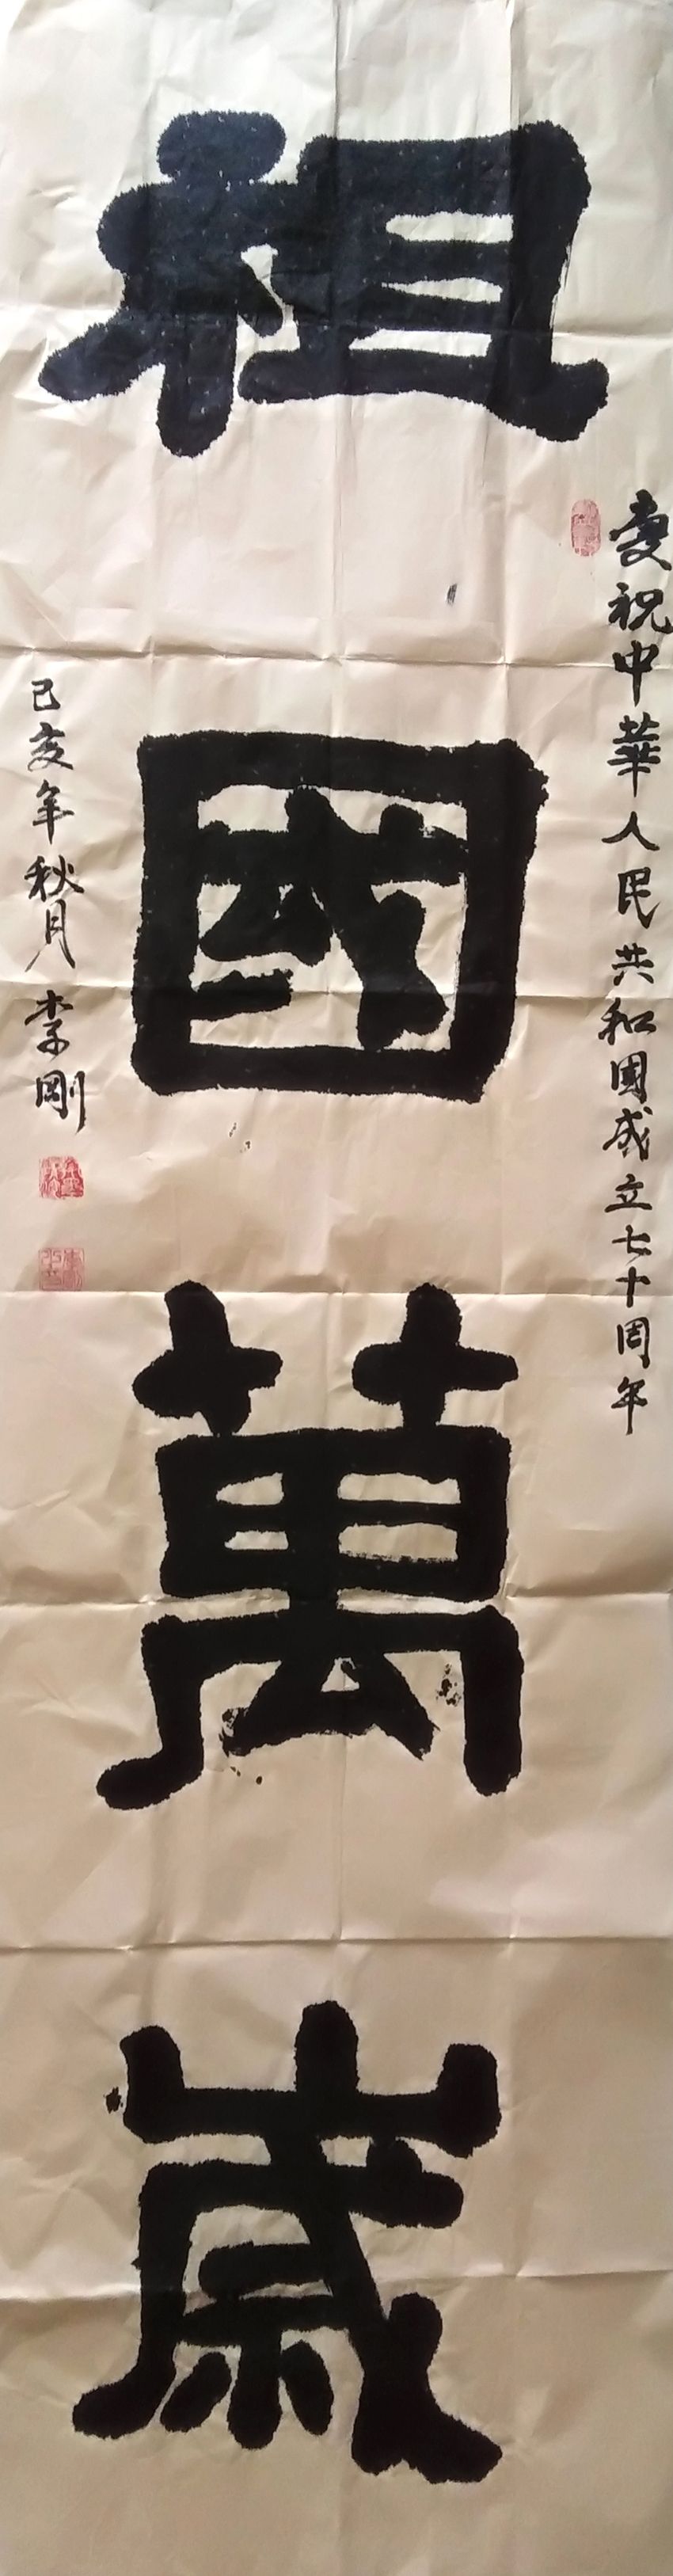 慶祝中華人民共和國成立七十周年
祖國萬歲
己亥年秋月 李剛